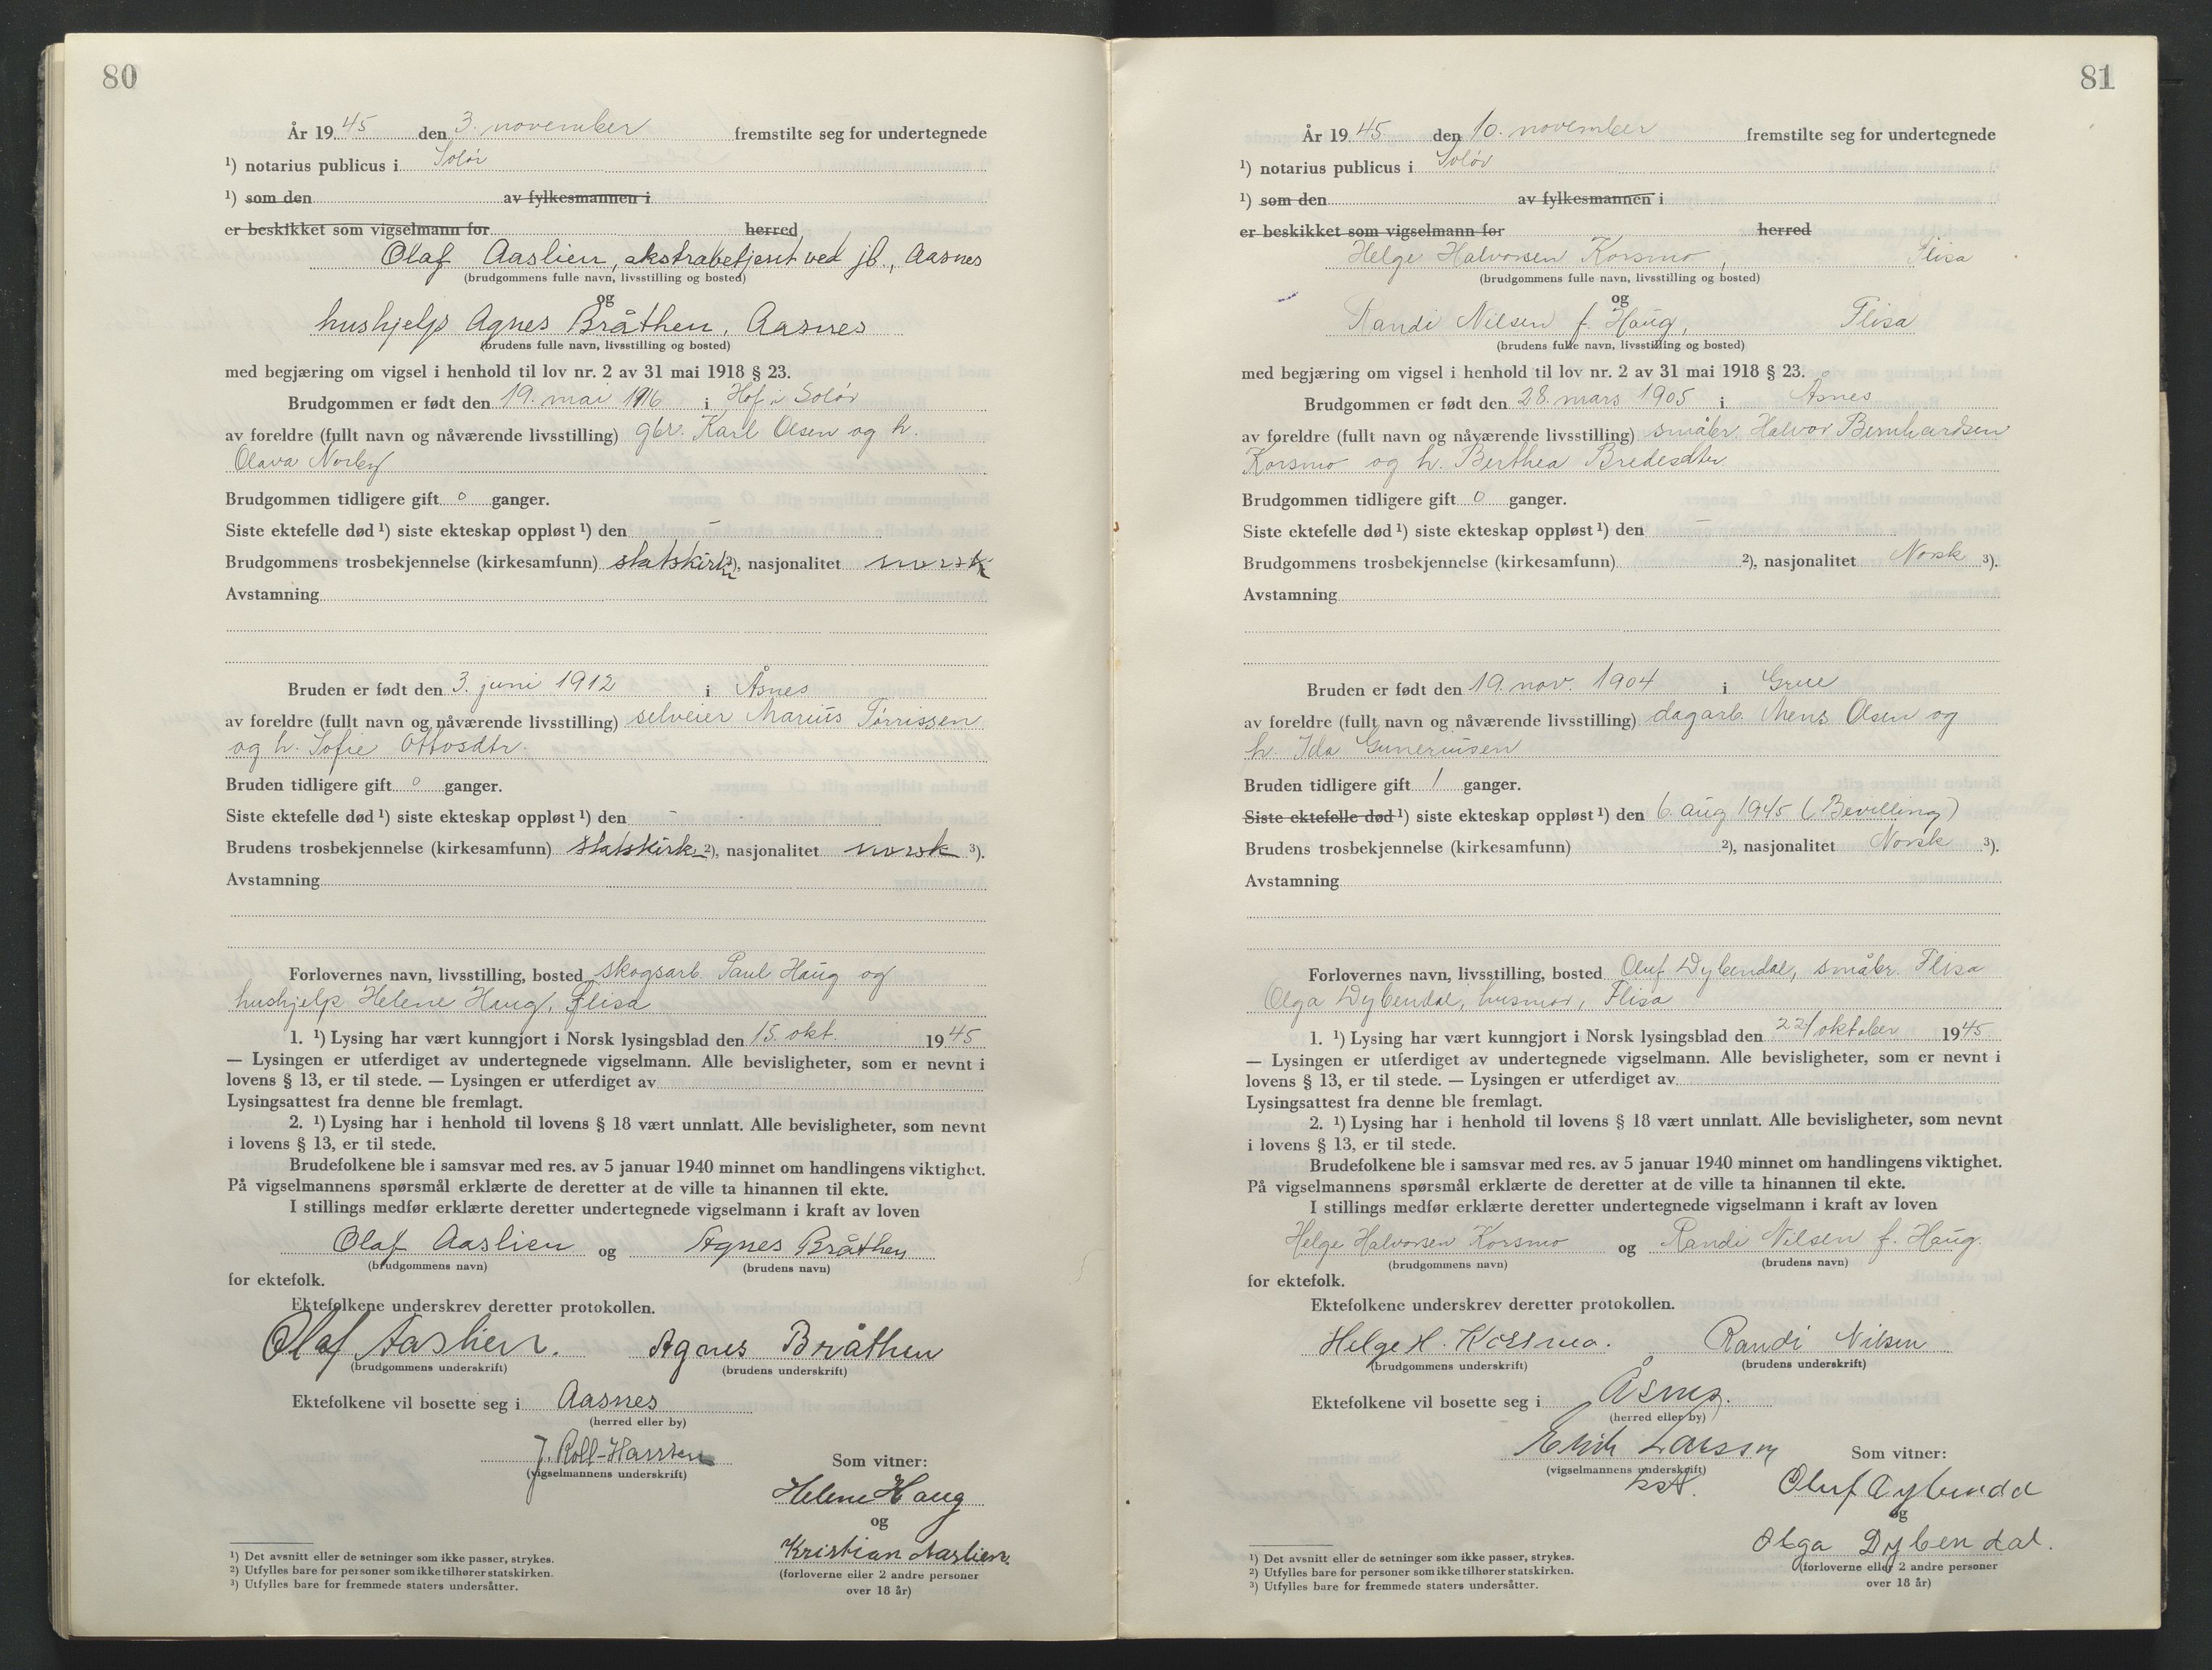 80
År 19 45 den 3. november fremstilte seg for undertegnede
¹) notarius publicus i Solør
¹) som den av fylkesmannen i
er beskikket som vigselmann for herred
Olaf Aaslien, ekstrabetjent ved jb., Aasnes
(brudgommens fulle navn, livsstilling og bosted)
og
hushjelp Agnes Bråthen, Aasnes
(brudens fulle navn, livsstilling og bosted)
med begjæring om vigsel i henhold til lov nr. 2 av 31 mai 1918 § 23.
Brudgommen er født den 19. mai 1916 i Hof i Solør
av foreldre (fullt navn og nåværende livsstilling) gbr. Karl Olsen og h.
Olava Norby
Brudgommen tidligere gift 0 ganger.
Siste ektefelle død ¹) siste ekteskap oppløst ¹) den -
Brudgommens trosbekjennelse (kirkesamfunn) statskirk ²), nasjonalitet norsk
Avstamning
Bruden er født den 3. juni 1912 i Åsnes
av foreldre (fullt navn og nåværende livsstilling) selveier Marius Tørrissen
og h. Sofie Ottosdtr.
Bruden tidligere gift 0 ganger.
Siste ektefelle død ¹) siste ekteskap oppløst ¹) den -
Brudens trosbekjennelse (kirkesamfunn) statskirk ²), nasjonalitet norsk ³).
Avstamning
Forlovernes navn, livsstilling, bosted skogsarb. Paul Haug og
hushjelp Helene Haug, Flisa
1. ¹) Lysing har vært kunngjort i Norsk lysingsblad den 15. okt. 19 45
— Lysingen er utferdiget av undertegnede vigselmann. Alle bevisligheter, som er nevnt i
lovens § 13, er til stede. — Lysingen er utferdiget av
Lysingsattest fra denne ble fremlagt.
2. ¹) Lysing har i henhold til lovens § 18 vært unnlatt. Alle bevisligheter, som nevnt
i lovens § 13, er til stede.
Brudefolkene ble i samsvar med res. av 5 januar 1940 minnet om handlingens viktighet.
På vigselmannens spørsmål erklærte de deretter at de ville ta hinannen til ekte.
I stillings medfør erklærte deretter undertegnede vigselmann i kraft av loven
Olaf Aaslien og Agnes Bråthen
(brudgommens navn) (brudens navn)
for ektefolk.
Ektefolkene underskrev deretter protokollen.
Olaf Aaslien. Agnes Bråthen
(brudgommens underskrift) (brudens underskrift)
Ektefolkene vil bosette seg i Aasnes
(herred eller by)
J. Roll-Hansen
(vigselmannens underskrift)
Som vitner:
Helene Haug
og
Kristian Aaslien.
(forloverne eller 2 andre personer
over 18 år)
¹) Det avsnitt eller de setninger som ikke passer, strykes.
²) Utfylles bare for personer som ikke tilhører statskirken.
³) Utfylles bare for fremmede staters undersåtter.
81
År 19 45 den 10. november fremstilte seg for undertegnede
¹) notarius publicus i Solør
¹) som den av fylkesmannen i
er beskikket som vigselmann for herred
Helge Halvorsen Korsmo, Flisa
(brudgommens fulle navn, livsstilling og bosted)
og
Randi Nilsen f. Haug, Flisa
(brudens fulle navn, livsstilling og bosted)
med begjæring om vigsel i henhold til lov nr. 2 av 31 mai 1918 § 23.
Brudgommen er født den 28. mars 1905 i Åsnes
av foreldre (fullt navn og nåværende livsstilling) småbr. Halvor Bernhardsen
Korsmo og h. Berthea Bredesdtr.
Brudgommen tidligere gift 0 ganger.
Siste ektefelle død ¹) siste ekteskap oppløst ¹) den -
Brudgommens trosbekjennelse (kirkesamfunn) ²), nasjonalitet Norsk ³).
Avstamning
Bruden er født den 19. nov. 1904 i Grue
av foreldre (fullt navn og nåværende livsstilling) dagarb. Mens Olsen og
h. Ida Guneriusen
Bruden tidligere gift 1 ganger.
Siste ektefelle død ¹) siste ekteskap oppløst ¹) den 6. aug 1945 (Bevilling)
Brudens trosbekjennelse (kirkesamfunn) ²), nasjonalitet Norsk ³).
Avstamning
Forlovernes navn, livsstilling, bosted Oluf Dybendal, småbr. Flisa
Olga Dybendal, husmor, Flisa
1. ¹) Lysing har vært kunngjort i Norsk lysingsblad den 22/ oktober 19 45.
— Lysingen er utferdiget av undertegnede vigselmann. Alle bevisligheter, som er nevnt i
lovens § 13, er til stede. — Lysingen er utferdiget av
Lysingsattest fra denne ble fremlagt.
2. ¹) Lysing har i henhold til lovens § 18 vært unnlatt. Alle bevisligheter, som nevnt
i lovens § 13, er til stede.
Brudefolkene ble i samsvar med res. av 5 januar 1940 minnet om handlingens viktighet.
På vigselmannens spørsmål erklærte de deretter at de ville ta hinannen til ekte.
I stillings medfør erklærte deretter undertegnede vigselmann i kraft av loven
Helge Halvorsen Korsmo og Randi Nilsen f. Haug.
(brudgommens navn) (brudens navn)
for ektefolk.
Ektefolkene underskrev deretter protokollen.
Helge H. Korsmo. Randi Nilsen
(brudgommens underskrift) (brudens underskrift)
Ektefolkene vil bosette seg i Åsnes.
(herred eller by)
Erik Larssen
(vigselmannens underskrift)
Som vitner:
Oluf Dybendal
og
Olga Dybendal.
(forloverne eller 2 andre personer
over 18 år)
¹) Det avsnitt eller de setninger som ikke passer, strykes.
²) Utfylles bare for personer som ikke tilhører statskirken.
³) Utfylles bare for fremmede staters undersåtter.